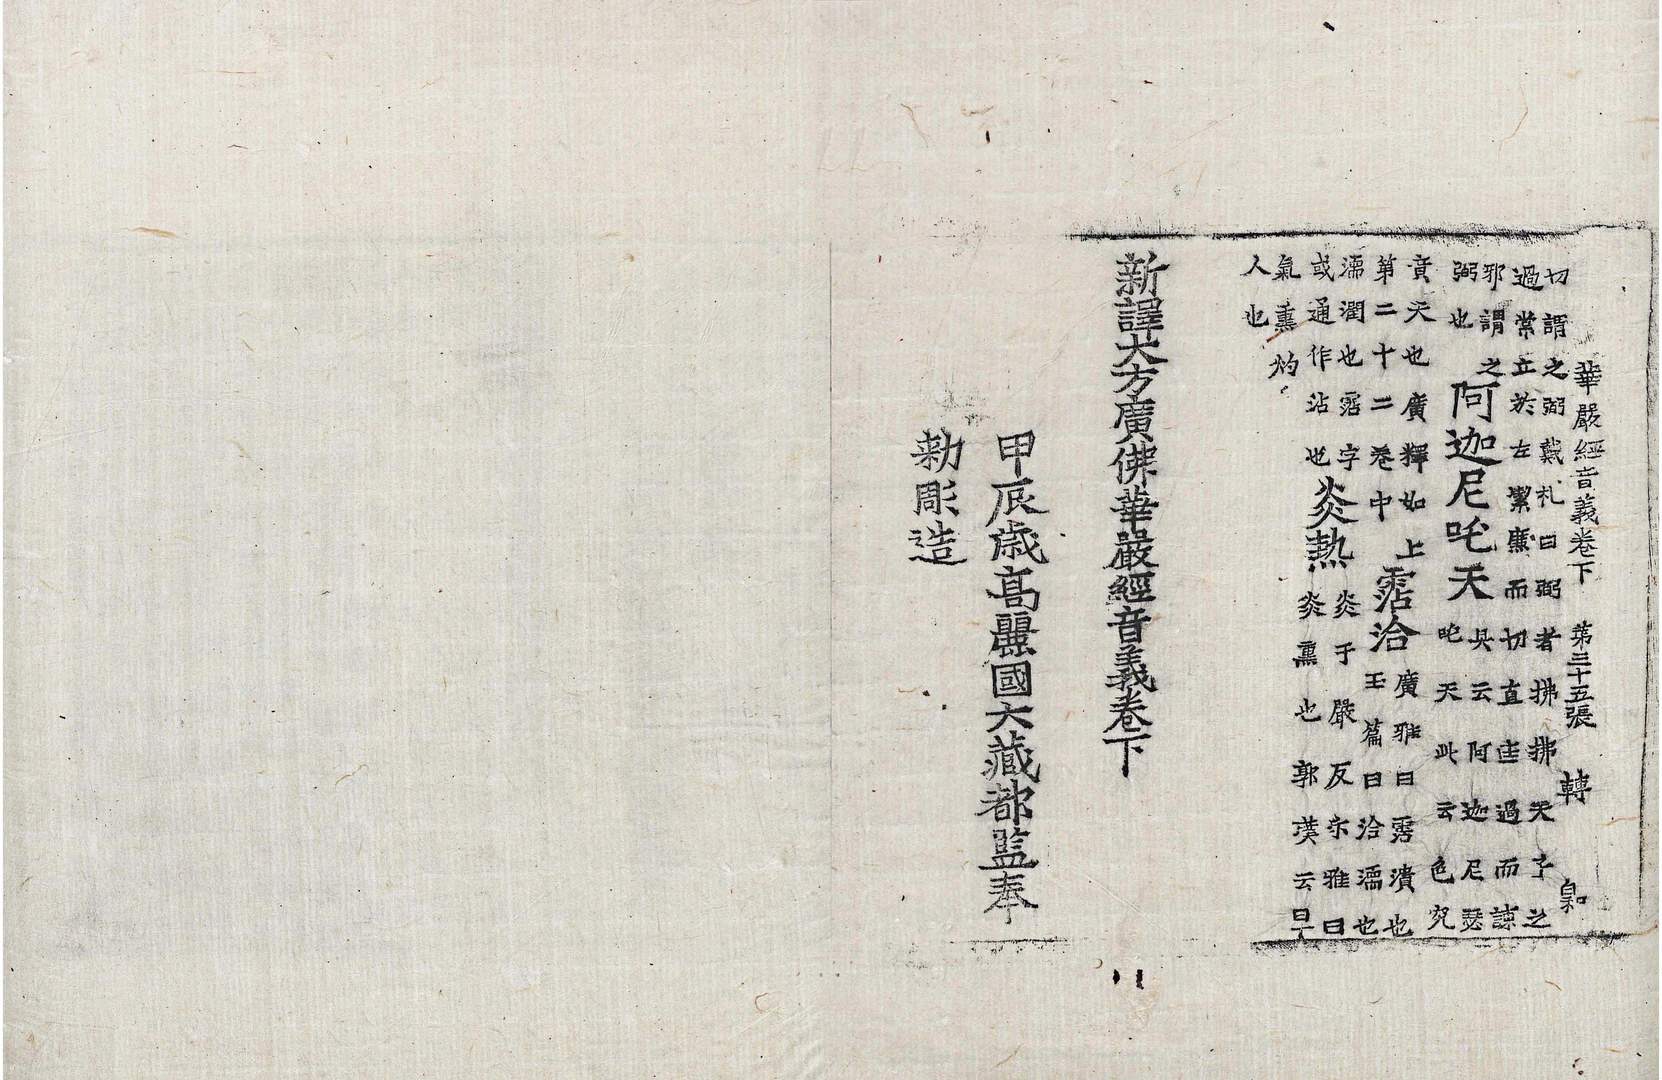 華嚴經音義卷下 第三十五張 轉
切謂之弼戴札曰弼者拂拂天子之
過常立於左絜廉而切直匡過而諫
邪謂之
弼也
阿迦尼吒天
具云阿迦尼瑟
吒天此云色究
竟天也廣釋如上
第二十二卷中
霑洽
廣雅曰霑漬也
玉篇曰洽濡也
濡潤也霑字
或通作沾也
炎熱
炎于嚴反尔雅曰
炎熏也郭璞云曰
氣熏灼
人也
新譯大方廣佛華嚴經音義卷下
甲辰歲高麗國大藏都監奉
勑彫造